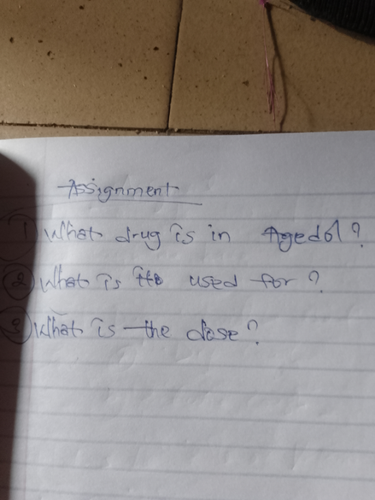 Assignment
① What drug is in Agedol?
② What is it used for?
③ What is the dose?